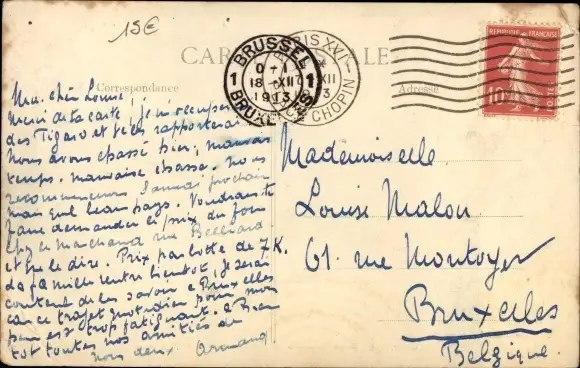 15€
CARTE POSTALE
Correspondance
Adresse
BRUSSEL
1
18 XII
1913
1
BRUXELLES
PARIS XVI
XII
CHOPIN
REPUBLIQUE FRANÇAISE
10
POSTES
Ma chère Louise!
Merci de ta carte! Je
des et te les rapporterai
Nous avons chassé hier, mauvais
temps. mauvaise chasse. Nous
recommencerons Samedi prochain
mais quel beau pays. Voudrais-tu
faire demander le prix du foin
chez le marchand rue Belliard
et me le dire. Prix par botte de 7 K.
la famille rentre bientôt. Je serai
content de les savoir à Bruxelles
car ce trajet quotidien pour mon
est trop fatiguant. à bien
tôt toutes nos amitiés de
nous deux. Armand
Mademoiselle
Louise Malou
61. rue Montoyer
Bruxelles
Belgique.